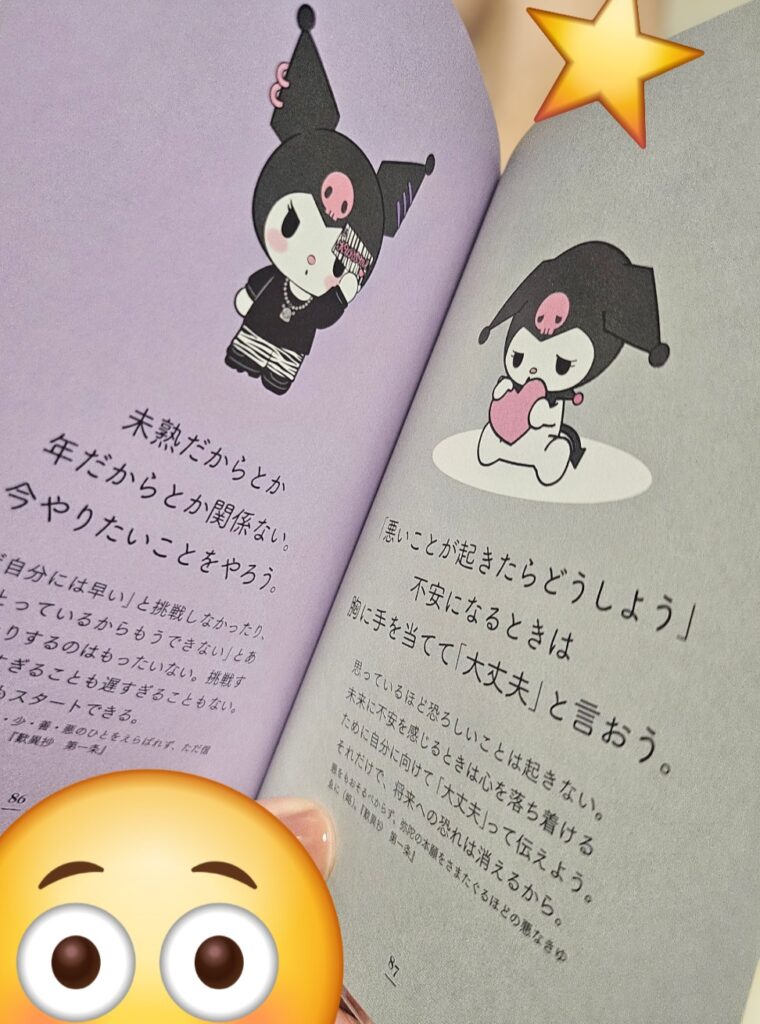 未熟だからとか
年だからとか関係ない。
今やりたいことをやろう。
自分には早い」と挑戦しなかったり、
とっているからもうできない」とあ
りするのはもったいない。挑戦す
すぎることも遅すぎることもない。
もスタートできる。
・少・善・悪のひとをえらばれず、ただ信
『歎異抄 第一条』
86
「悪いことが起きたらどうしよう」
不安になるときは
胸に手を当てて「大丈夫」と言おう。
思っているほど恐ろしいことは起きない。
未来に不安を感じるときは心を落ち着ける
ために自分に向けて「大丈夫」って伝えよう。
それだけで、将来への恐れは消えるから。
悪をもおそるべからず、弥陀の本願をさまたぐるほどの悪なきゆ
ゑに(略)。『歎異抄 第一条』
87